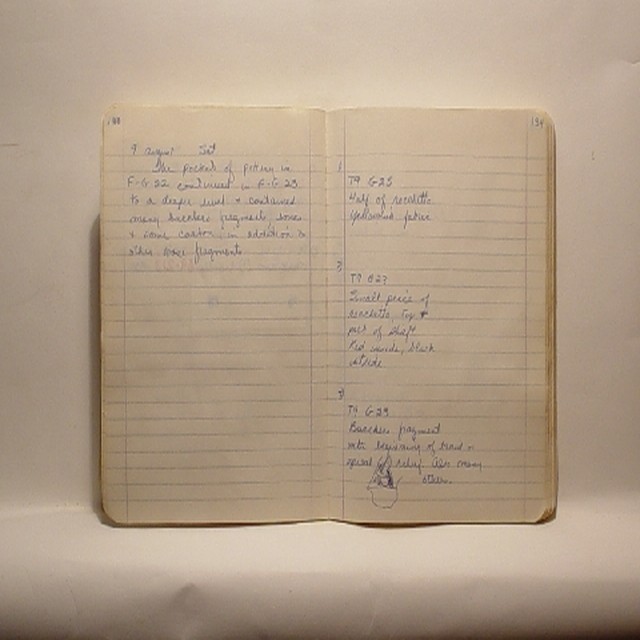 9 August Sat
The pocket of pottery in
F-G 22 continued in F-G 23
to a deeper level & contained
many fragments, bones
& some carbon, in addition to
other fragments
134
1
T9 G23
Half of rocchetto
yellowish
2
T9 G23
Small piece of
rocchetto, top &
part of shaft
Red inside, black
outside
3
T9 G23
fragment
with beginning of &
spiral relief. Also many
others.